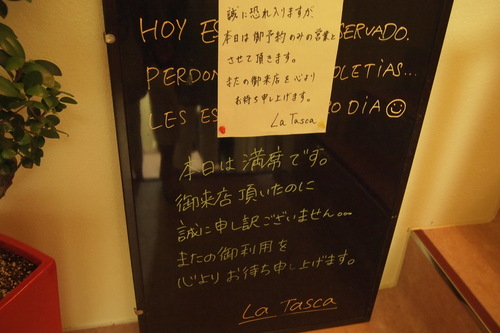 誠に恐れ入りますが
本日は御予約のみの営業と
させて頂きます。
またの御来店を心より
お待ち申し上げます。
La Tasca
HOY ES SERVADO.
PERDON LETIAS...
LES ES O DIA☺
本日は満席です。
御来店頂いたのに
誠に申し訳ございません。。
またの御利用を
心よりお待ち申し上げます。
La Tasca